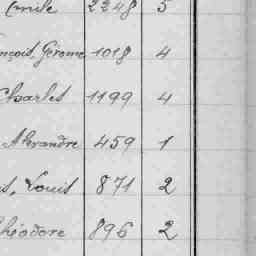 Emile 2248 5
nçois, Gérome 1018 4
Charles 1199 4
Alexandre 459 1
s, Louis 871 2
héodore 896 2